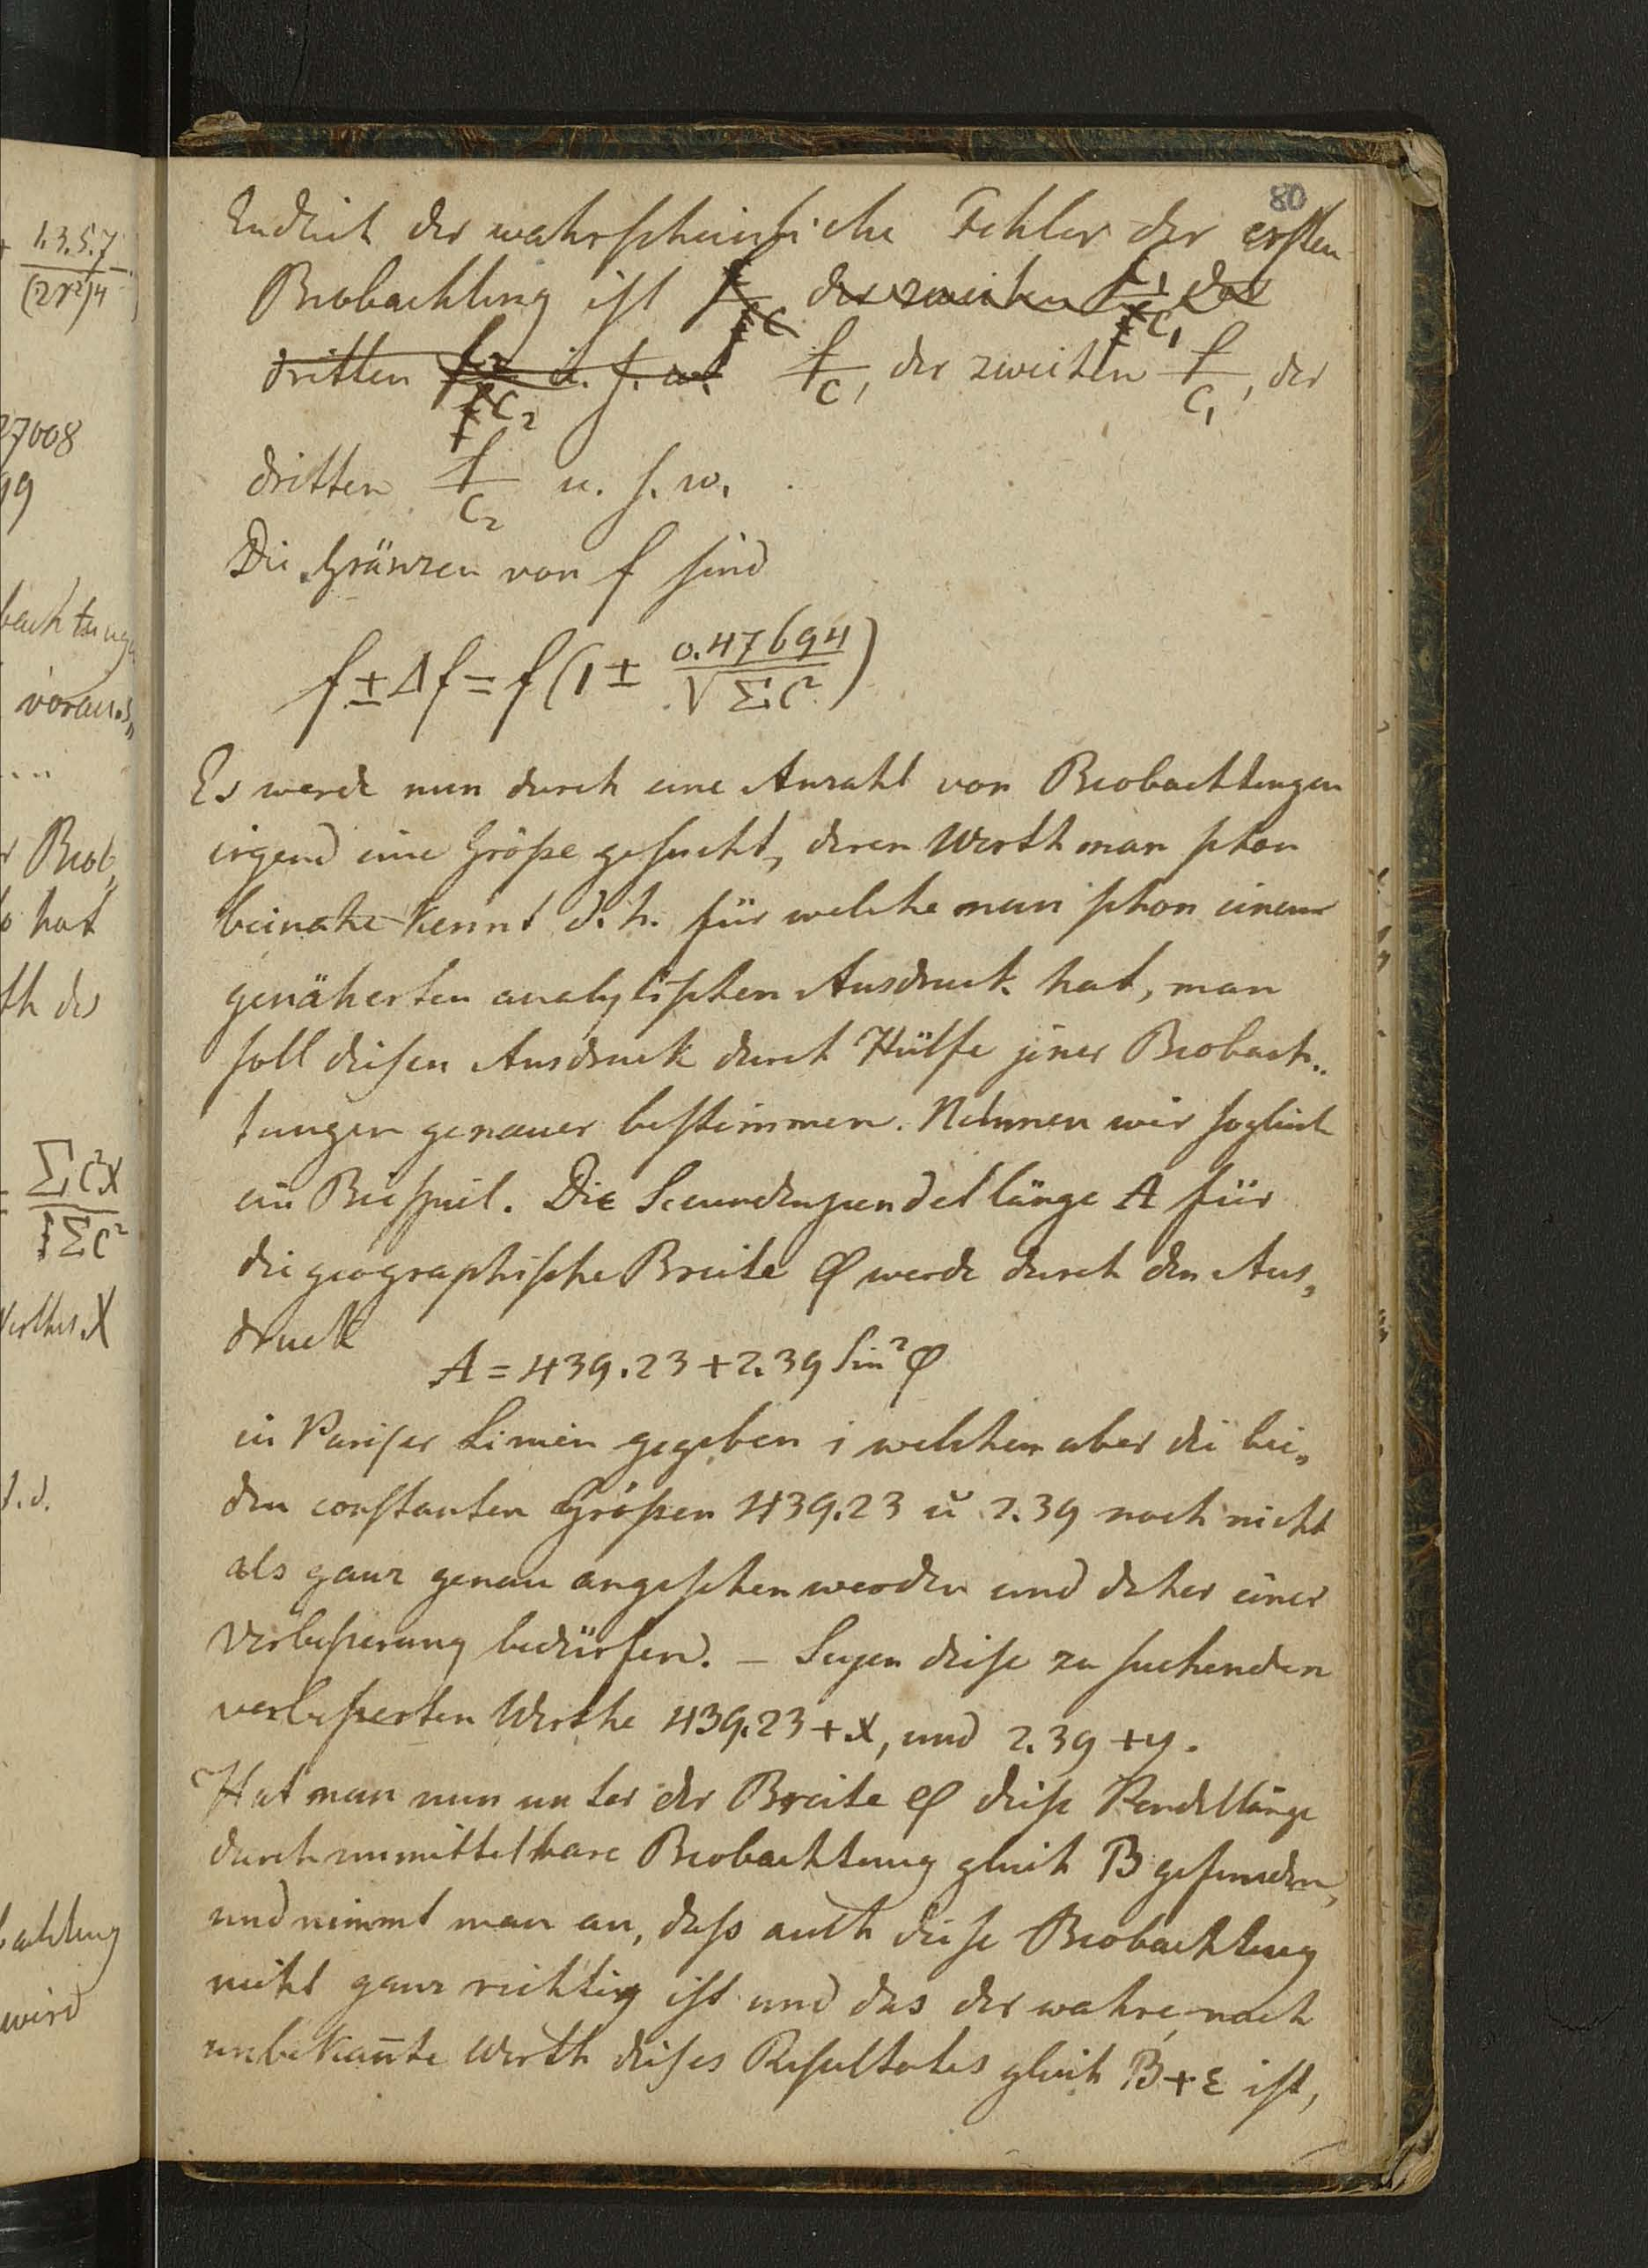 80
Endlich der wahrscheinliche Fehler der ersten
Beobachtung ist der zweiten der
dritten u. s. w. f/C, der zweiten f/C₁, der
dritten f/C₂ u. s. w.
Die Gränzen von f sind
f ± Δf = f(1 ± 0.47694/√ΣC²)
Es werde nun durch eine Anzahl von Beobachtungen
irgend eine Größe gesucht, deren Werth man schon
beinahe kennt d. h. für welche man schon einen
genäherten analytischen Ausdruck hat, man
soll diesen Ausdruck durch Hülfe jener Beobach„
tungen genauer bestimmen. Nehmen wir sogleich
ein Beispiel. Die Secundenpendellänge A für
die geographische Breite φ werde durch den Aus„
druck
A = 439.23 + 2.39 Sin²φ
in Pariser Linien gegeben in welchem aber die bei„
den constanten Größen 439.23 u 2.39 noch nicht
als ganz genau angesehen werden und daher einer
Verbesserung bedürfen. – Seyen diese zu suchenden
verbesserten Werthe 439.23 + x, und 2.39 + y.
Hat man nun unter der Breite φ diese Pendellänge
durch unmittelbare Beobachtung gleich B gefunden,
und nimmt man an, daß auch diese Beobachtung
nicht ganz richtig ist und das der wahre, noch
unbekan̄te Werth dieses Resultates gleich B + ε ist,
1.3.5.7
(2r²)4
27008
99
bachtung
voraus„
....
r Beob„
o hat
th des
ΣC²X
ΣC²
Werthes X
wird